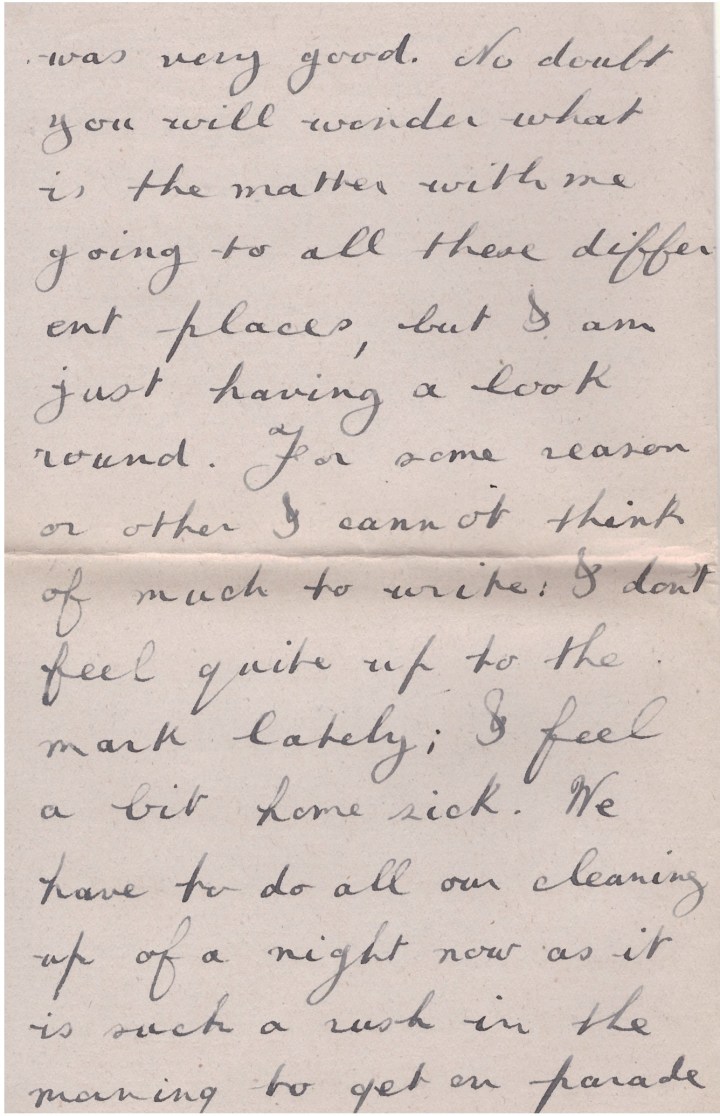 was very good. No doubt
you will wonder what
is the matter with me
going to all these differ
ent places, but I am
just having a look
round. For some reason
or other I cannot think
of much to write: I don't
feel quite up to the
mark lately; I feel
a bit home sick. We
have to do all our cleaning
up of a night now as it
is such a rush in the
morning to get on parade